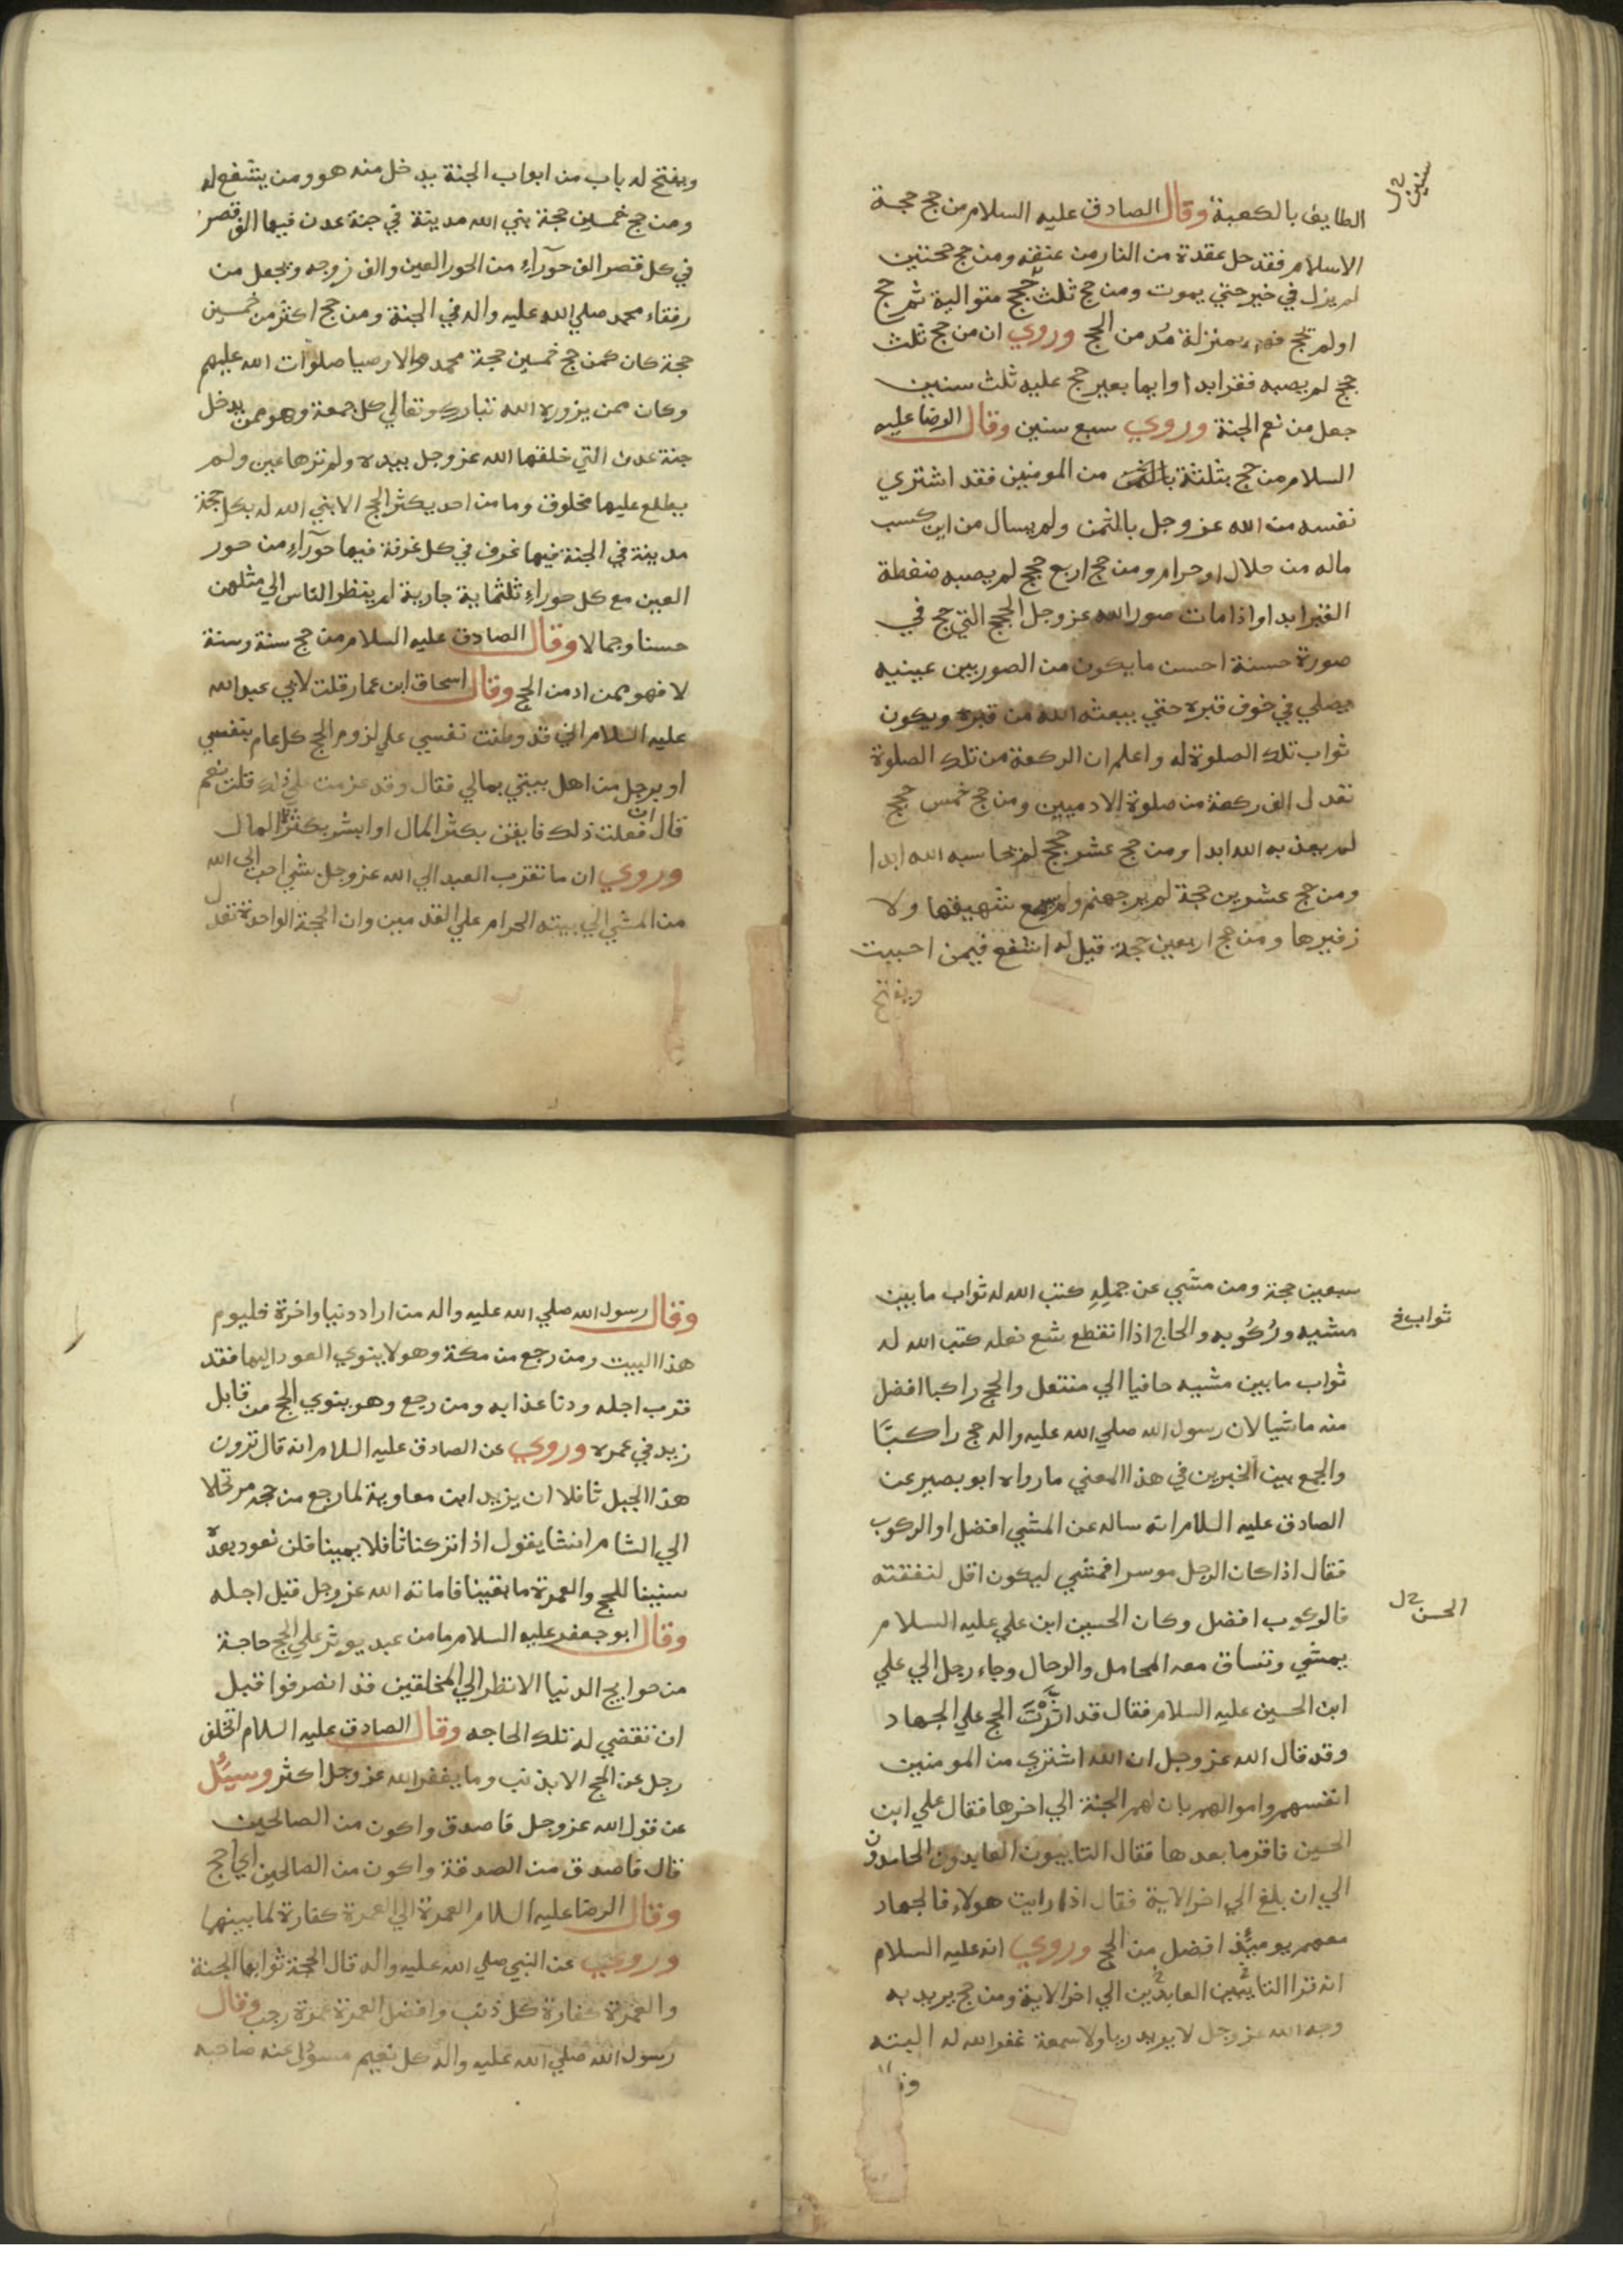 الطايف بالكعبة وقال الصادق عليه السلام من حج حجة
سنين خ ل
الاسلام فقد حل عقدة من النار من عنقه ومن حج حجتين
لم يزل في خير حتي يموت ومن حج ثلث حجج متوالية ثم حج
اولم يحج فهو بمنزلة مدمن الحج وروي ان من حج ثلث
حجج لم يصبه فقر ابدا وايما بعير حج عليه ثلث سنين
جعل من نعم الجنة وروي سبع سنين وقال الرضا عليه
السلام من حج بثلثة من المومنين فقد اشتري
نفسه من الله عز وجل بالثمن ولم يسال من اين كسب
ماله من حلال او حرام ومن حج اربع حجج لم يصبه ضغطة
القبر ابدا واذا مات صور الله عز وجل الحجج التي حج في
صورة حسنة احسن ما يكون من الصور بين عينيه
يصلي في خوف قبره حتي يبعثه الله من قبره ويكون
ثواب تلك الصلوة له واعلم ان الركعة من تلك الصلوة
تعدل الف ركعة من صلوة الادميين ومن حج خمس حجج
لم يعذبه الله ابدا ومن حج عشر حجج لم يحاسبه الله ابدا
ومن حج عشرين حجة لم ير جهنم ولم يسمع شهيقها ولا
زفيرها ومن حج اربعين حجة قيل له اشفع فيمن احببت
ويفتح
ويفتح له باب من ابواب الجنة يدخل منه هو ومن يشفع له
ومن حج خمسين حجة بني الله مدينة في جنة عدن فيها الف قصر
في كل قصر الف حوراء من الحور العين والف زوجه ويجعل من
رفقاء محمد صلي الله عليه واله في الجنة ومن حج اكثر من خمسين
حجة كان كمن حج خمسين حجة محمد والاوصيا صلوات الله عليهم
وكان ممن يزوره الله تبارك وتعالي كل جمعة وهو ممن يدخل
جنة عدن التي خلقها الله عز وجل بيده ولم ترها عين ولم
يطلع عليها مخلوق وما من احد يكثر الحج الا بني الله له بكل حجة
مدينة في الجنة فيها غرف في كل غرفة فيها حوراء من حور
العين مع كل حوراء ثلثماية جارية لم ينظر الناس الي مثلهن
حسنا وجمالا وقال الصادق عليه السلام من حج سنة وسنة
لا فهو ممن ادمن الحج وقال اسحاق ابن عمار قلت لابي عبد الله
عليه السلام اني قد وطنت نفسي علي لزوم الحج كل عام بنفسي
او برجل من اهل بيتي بمالي فقال وقد عزمت علي ذلك قلت نعم
قال ان فعلت ذلك فايقن بكثر المال او ابشر بكثرة المال
وروي ان ما تقرب العبد الي الله عز وجل بشي احب الي الله
من المشي الي بيته الحرام علي القدمين وان الحجة الواحدة تعدل
سبعين حجة ومن مشي عن جمله كتب الله له ثواب ما بين
ثواب خ
مشيه وركوبه والحاج اذا انقطع شع نعله كتب الله له
ثواب ما بين مشيه حافيا الي منتعل والحج راكبا افضل
منه ماشيا لان رسول الله صلي الله عليه واله حج راكبا
والجمع بين الخبرين في هذا المعني ما رواه ابو بصير عن
الصادق عليه السلام انه ساله عن المشي افضل او الركوب
فقال اذا كان الرجل موسرا فمشي ليكون اقل لنفقته
فالركوب افضل وكان الحسين ابن علي عليه السلام
الحسن خ ل
يمشي وتساق معه المحامل والرحال وجاء رجل الي علي
ابن الحسين عليه السلام فقال قد اثرت الحج علي الجهاد
وقد قال الله عز وجل ان الله اشتري من المومنين
انفسهم واموالهم بان لهم الجنة الي اخرها فقال علي ابن
الحسين فاقر ما بعدها فقال التايبون العابدون الحامدون
الي ان بلغ الي اخر الاية فقال اذا رايت هولاء فالجهاد
معهم يوميذ افضل من الحج وروي انه عليه السلام
انه قرا التايبين العابدين الي اخر الاية ومن حج يريد به
وجه الله عز وجل لا يريد ريا ولا سمعة غفر الله له البته
وقال رسول الله صلي الله عليه واله من اراد دنيا واخرة فليوم
هذا البيت ومن رجع من مكة وهو لا ينوي العود اليها فقد
قرب اجله ودنا عذابه ومن رجع وهو ينوي الحج من قابل
زيد في عمره وروي عن الصادق عليه السلام انه قال ترون
هذا الجبل ثافلا ان يزيد ابن معاوية لما رجع من حجه مرتحلا
الي الشام انشا يقول اذا تركنا ثافلا يمينا فلن نعود بعده
سنينا للحج والعمرة ما بقينا فاماته الله عز وجل قبل اجله
وقال ابو جعفر عليه السلام ما من عبد يوثر علي الحج حاجة
من حوايج الدنيا الا نظر الي المخلقين قد انصرفوا قبل
ان تنقضي له تلك الحاجه وقال الصادق عليه السلام اتخلف
رجل عن الحج الا بذنب وما يغفر الله عز وجل اكثر وسئل
عن قول الله عز وجل فاصدق واكون من الصالحين
قال فاصدق من الصدقة واكون من الصالحين اي احج
وقال الرضا عليه السلام العمرة الي العمرة كفارة لما بينهما
وروي عن النبي صلي الله عليه واله قال الحجة ثوابها الجنة
والعمرة كفارة كل ذنب وافضل العمرة عمرة رجب وقال
رسول الله صلي الله عليه واله كل نعيم مسؤل عنه صاحبه